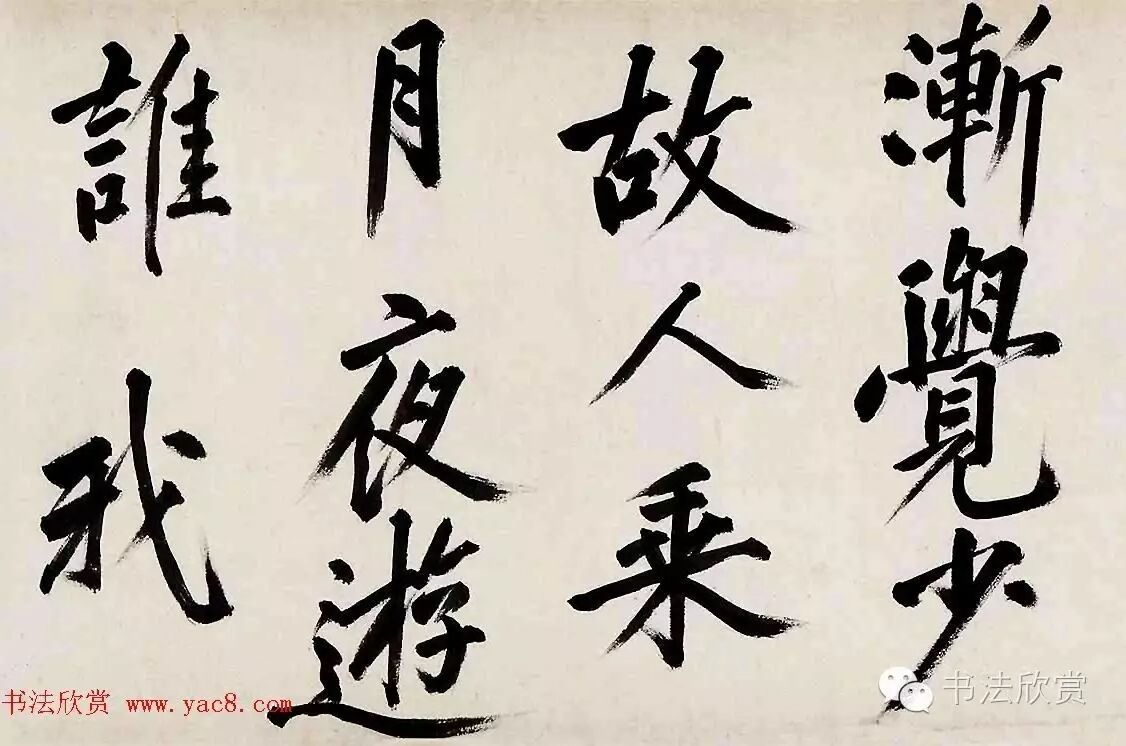 漸覺少
故人乘
月夜遊
誰我
书法欣赏 www.yac8.com
书法欣赏